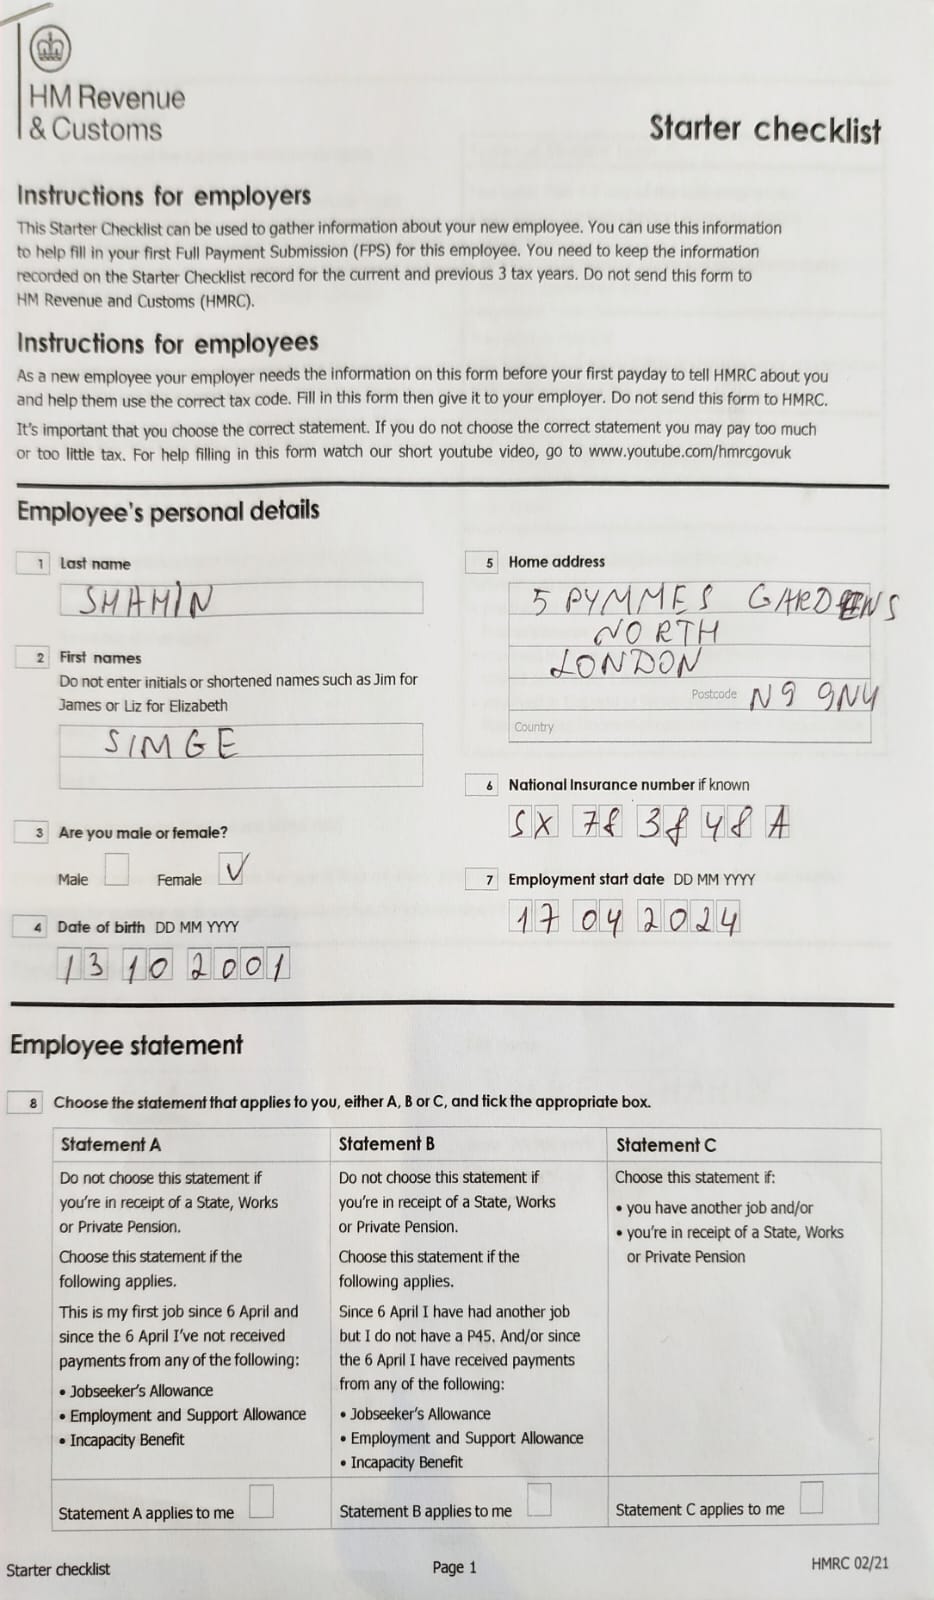 HM Revenue
& Customs
Starter checklist
Instructions for employers
This Starter Checklist can be used to gather information about your new employee. You can use this information
to help fill in your first Full Payment Submission (FPS) for this employee. You need to keep the information
recorded on the Starter Checklist record for the current and previous 3 tax years. Do not send this form to
HM Revenue and Customs (HMRC).
Instructions for employees
As a new employee your employer needs the information on this form before your first payday to tell HMRC about you
and help them use the correct tax code. Fill in this form then give it to your employer. Do not send this form to HMRC.
It's important that you choose the correct statement. If you do not choose the correct statement you may pay too much
or too little tax. For help filling in this form watch our short youtube video, go to www.youtube.com/hmrcgovuk
Employee's personal details
1 Last name
SHAHIN
2 First names
Do not enter initials or shortened names such as Jim for
James or Liz for Elizabeth
SIMGE
3 Are you male or female?
Male Female ✓
4 Date of birth DD MM YYYY
13 10 2001
5 Home address
5 PYMMES GARDENS
NORTH
LONDON
Postcode N9 9NY
Country
6 National Insurance number if known
SX 78 38 48 A
7 Employment start date DD MM YYYY
17 04 2024
Employee statement
8 Choose the statement that applies to you, either A, B or C, and tick the appropriate box.
Statement A
Do not choose this statement if
you're in receipt of a State, Works
or Private Pension.
Choose this statement if the
following applies.
This is my first job since 6 April and
since the 6 April I've not received
payments from any of the following:
• Jobseeker's Allowance
• Employment and Support Allowance
• Incapacity Benefit
Statement A applies to me
Statement B
Do not choose this statement if
you're in receipt of a State, Works
or Private Pension.
Choose this statement if the
following applies.
Since 6 April I have had another job
but I do not have a P45. And/or since
the 6 April I have received payments
from any of the following:
• Jobseeker's Allowance
• Employment and Support Allowance
• Incapacity Benefit
Statement B applies to me
Statement C
Choose this statement if:
• you have another job and/or
• you're in receipt of a State, Works
or Private Pension
Statement C applies to me
Starter checklist
Page 1
HMRC 02/21